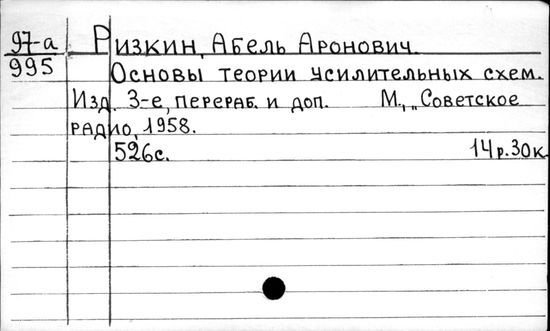 97-а
995
Ризкин, Абель Аронович.
Основы теории усилительных схем.
Изд. 3-е, перераб. и доп. М., „Советское
радио, 1958.
526с. 14р.30к